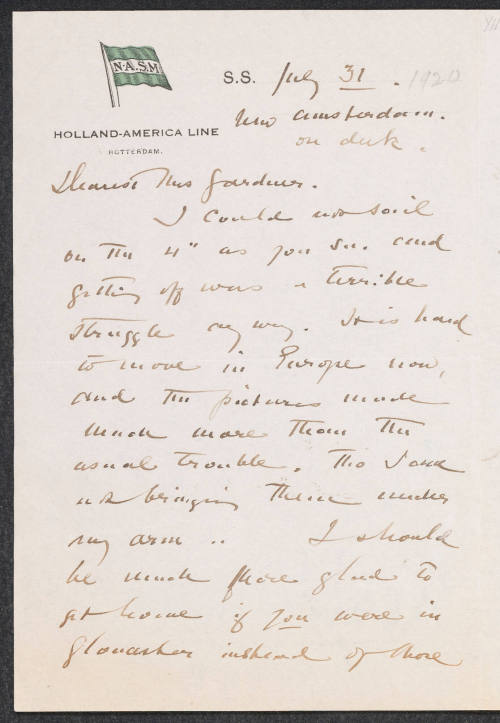 N.A.S.M
S.S. July 31. 1920
New Amsterdam.
on deck.
HOLLAND-AMERICA LINE
ROTTERDAM.
Dearest Mrs Gardner.
I could not sail
on the 4" as you see. and
getting off was a terrible
struggle any way. It is hard
to move in Europe now,
and the pictures made
much more than the
usual trouble. Tho I am
not bringing them under
my arm .. I should
be much more glad to
get home if you were in
Gloucester instead of those